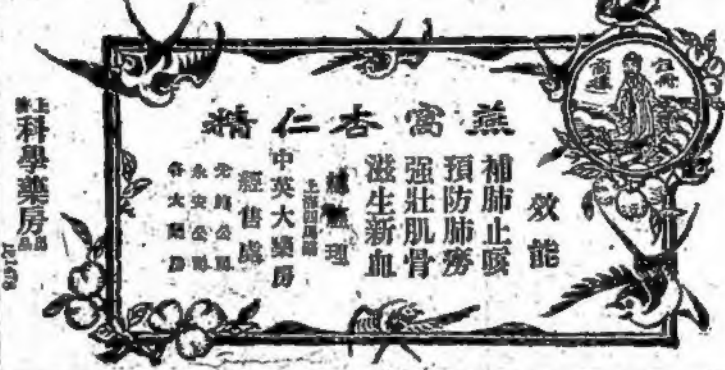 燕窩杏仁精
註冊
商標
效能
補肺止咳
預防肺癆
强壯肌骨
滋生新血
總經理
上海四馬路
中英大藥房
經售處
先施公司
永安公司
各大藥房
上海科學藥房出品